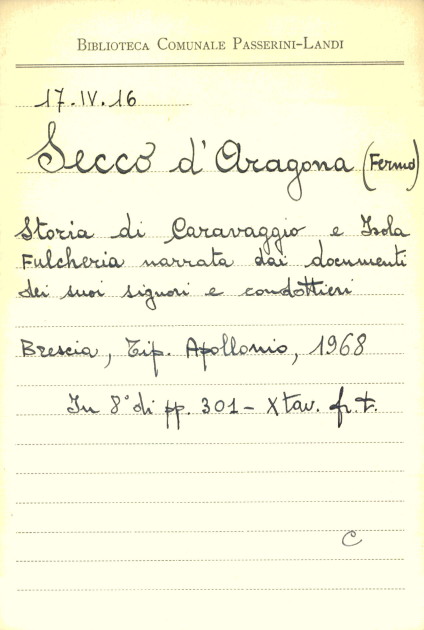 BIBLIOTECA COMUNALE PASSERINI-LANDI
17.IV.16
Secco d'Aragona (Fermo)
Storia di Caravaggio e Isola
Fulcheria narrata dai documenti
dei suoi signori e condottieri
Brescia, Tip. Apollonio, 1968
In 8° di pp. 301 - X tav. fr. t.
C